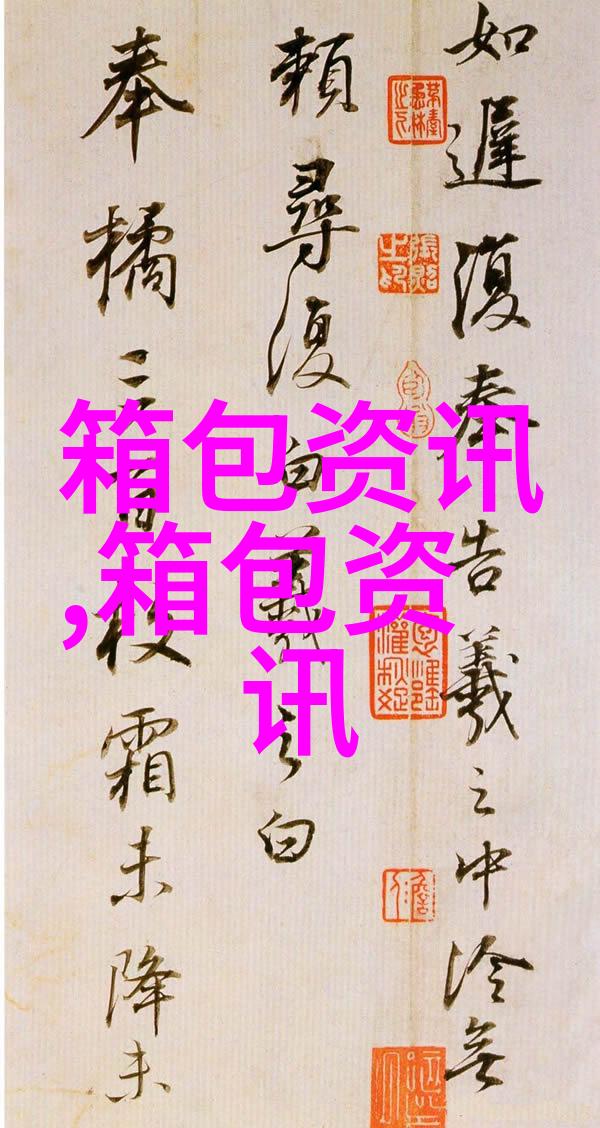 如遲復奉告羲之中冷無
賴尋復白羲之白
奉橘三百枚霜未降未
箱包资讯
,箱包资
讯